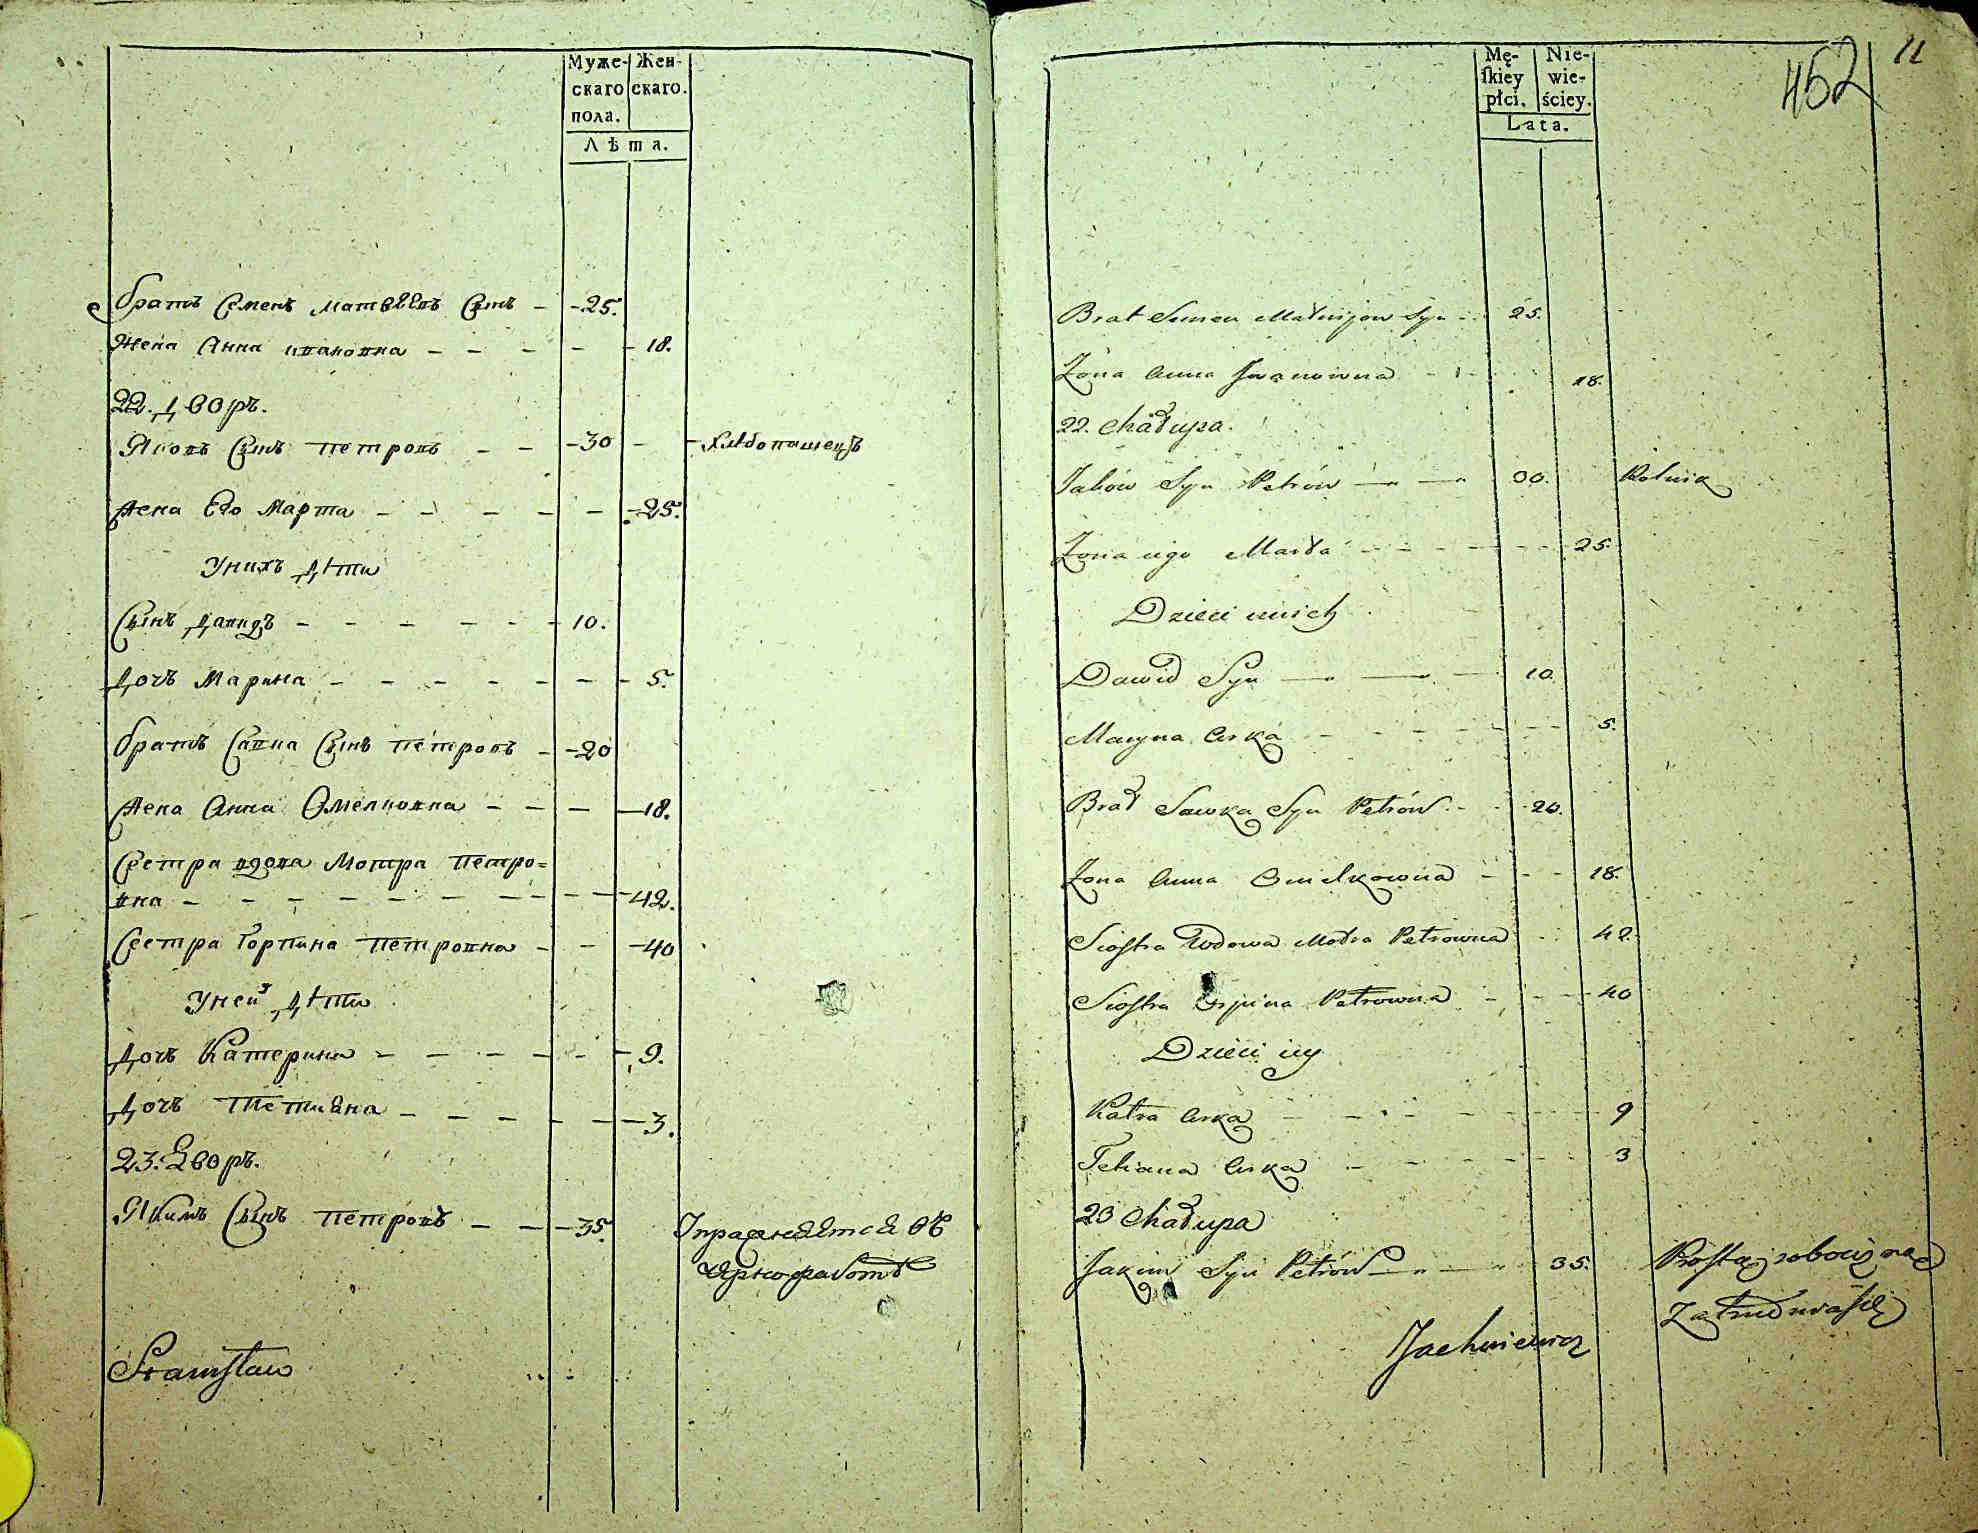 Муже-
скаго
пола.
Жен-
скаго.
Лѣта.
братъ Семенъ Матвѣевъ Сынъ - 25.
Жена Анна ивановна - - - - 18.
22. Дворъ.
Яковъ Сынъ петровъ - - 30 - хлѣбопашецъ
Жена Его Марта - - - - - 25.
Унихъ Дѣти
Сынъ Давидъ - - - - - - 10.
Дочъ Марина - - - - - - 5.
братъ Савка Сынъ петровъ - 20
Жена Анна Омелковна - - - 18.
Сестра вдова Мотра петро=
вна - - - - - - - - - 42.
Сестра Горпина петровна - - 40
Уней Дѣти
Дочъ Катерина - - - - - 9.
Дочъ Тетияна - - - - - 3.
23. Дворъ.
Якимъ Сынъ петровъ - - - 35. Упражняется въ
Stanisław
Mę-
ſkiey
płci.
Nie-
wie-
ściey.
Lata.
452
11
Brat Semen Matwijow Syn - 25.
Żona Anna Iwanowna - - 18.
22. Chałupa.
Jaków Syn Petrów - - 30. Rolnik
Żona iego Marta - - - - - 25.
Dzieci unich
Dawid Syn - - - 10.
Maryna Curka - - - - - 5.
Brat Sawka Syn Petrów - - 20.
Żona Anna Omelkowna - - - 18.
Siostra Wdowa Motra Petrowna - 42.
Siostra Petrowna - - - 40
Dzieci iey
Katra Curka - - - - - 9
Tetiana Curka - - - - - 3
23 Chałupa
Jakim Syn Petrów - - 35. Prostą robocizną
Zatrudnia się
Jachniewicz